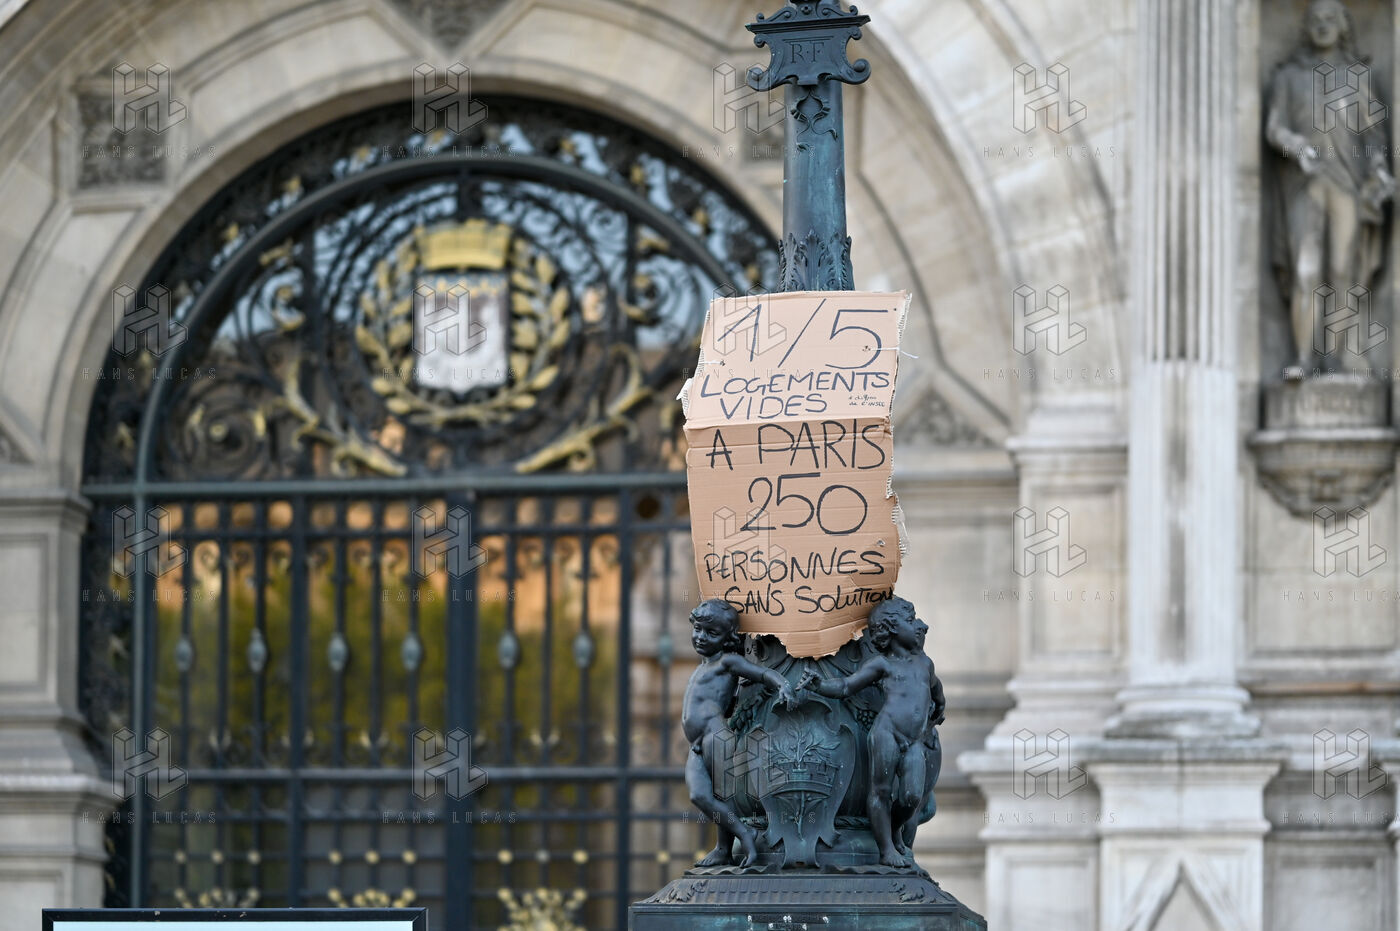 R·F
1/5
LOGEMENTS
VIDES
de l'INSEE
A PARIS
250
PERSONNES
SANS SOLUTION
HANS LUCAS